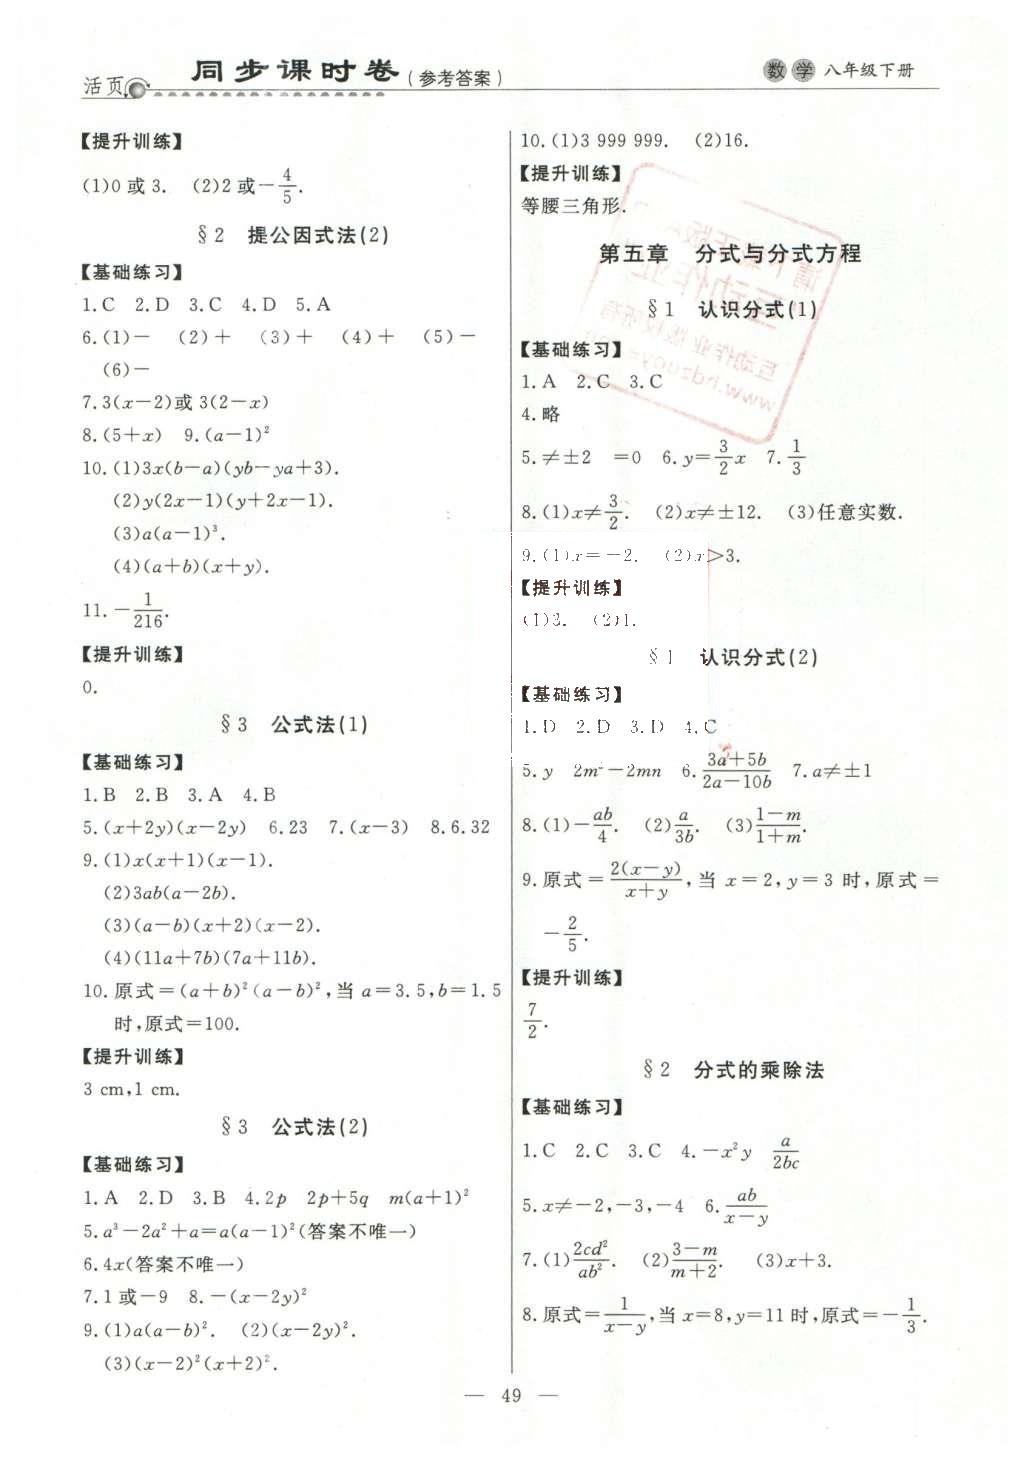 活页 同步课时卷(参考答案) 数学 八年级下册
【提升训练】
(1)0或3. (2)2或-4/5.
§2 提公因式法(2)
【基础练习】
1.C 2.D 3.C 4.D 5.A
6.(1)- (2)+ (3)+ (4)+ (5)-
(6)-
7.3(x-2)或3(2-x)
8.(5+x) 9.(a-1)²
10.(1)3x(b-a)(yb-ya+3).
(2)y(2x-1)(y+2x-1).
(3)a(a-1)³.
(4)(a+b)(x+y).
11.-1/216.
【提升训练】
0.
§3 公式法(1)
【基础练习】
1.B 2.B 3.A 4.B
5.(x+2y)(x-2y) 6.23 7.(x-3) 8.6.32
9.(1)x(x+1)(x-1).
(2)3ab(a-2b).
(3)(a-b)(x+2)(x-2).
(4)(11a+7b)(7a+11b).
10.原式=(a+b)²(a-b)²,当a=3.5,b=1.5
时,原式=100.
【提升训练】
3 cm,1 cm.
§3 公式法(2)
【基础练习】
1.A 2.D 3.B 4.2p 2p+5q m(a+1)²
5.a³-2a²+a=a(a-1)²(答案不唯一)
6.4x(答案不唯一)
7.1或-9 8.-(x-2y)²
9.(1)a(a-b)². (2)(x-2y)².
(3)(x-2)²(x+2)².
10.(1)3 999 999. (2)16.
【提升训练】
等腰三角形.
第五章 分式与分式方程
§1 认识分式(1)
【基础练习】
1.A 2.C 3.C
4.略
5.≠±2 =0 6.y=3/2x 7.1/3
8.(1)x≠3/2. (2)x≠±12. (3)任意实数.
9.(1)x=-2. (2)x>3.
【提升训练】
(1)3. (2)1.
§1 认识分式(2)
【基础练习】
1.D 2.D 3.D 4.C
5.y 2m²-2mn 6.(3a+5b)/(2a-10b) 7.a≠±1
8.(1)-ab/4. (2)a/3b. (3)(1-m)/(1+m).
9.原式=2(x-y)/(x+y),当x=2,y=3时,原式=
-2/5.
【提升训练】
7/2.
§2 分式的乘除法
【基础练习】
1.C 2.C 3.C 4.-x²y a/2bc
5.x≠-2,-3,-4 6.ab/(x-y)
7.(1)2cd²/ab². (2)(3-m)/(m+2). (3)x+3.
8.原式=1/(x-y),当x=8,y=11时,原式=-1/3.
— 49 —